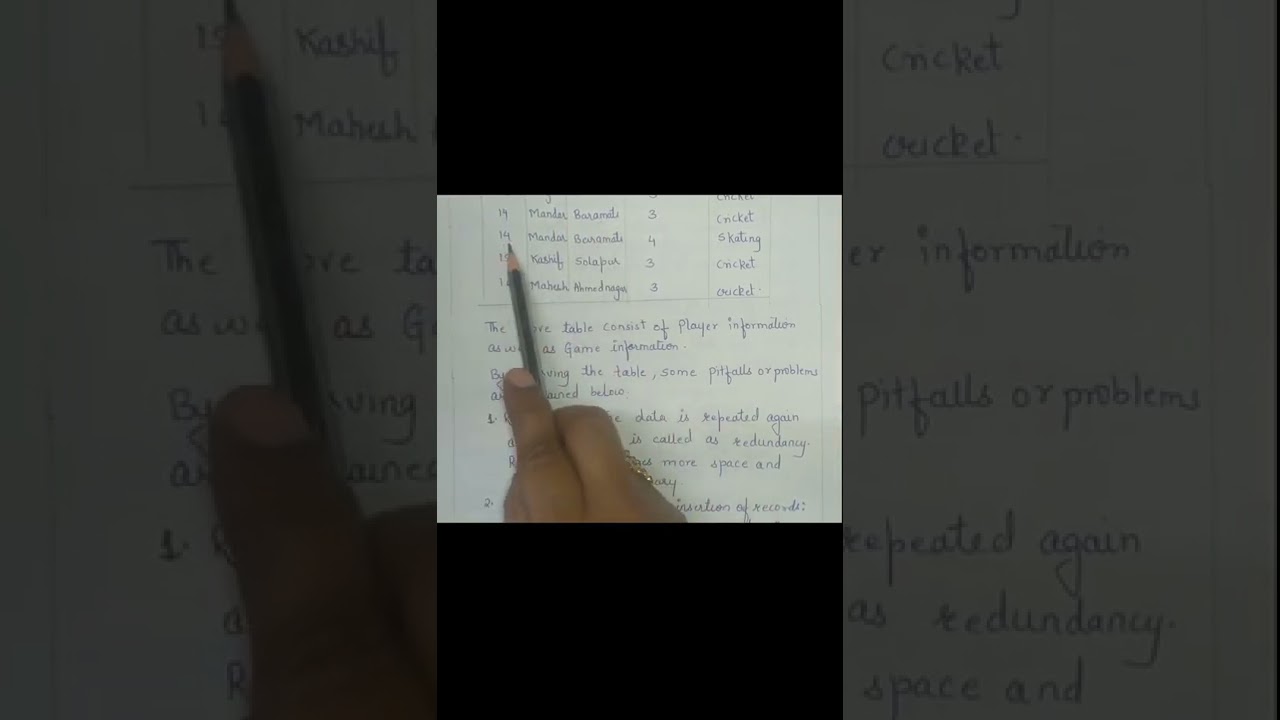 Cricket
14 Mandar Baramati 3 Cricket
14 Mandar Baramati 4 Skating
15 Kashif Solapur 3 Cricket
Mahesh Ahmednagar 3 cricket.
The table consist of Player information
as as Game information.
the table, some pitfalls or problems
below.
1. data is repeated again
is called as redundancy.
more space and
2. insertion of records: